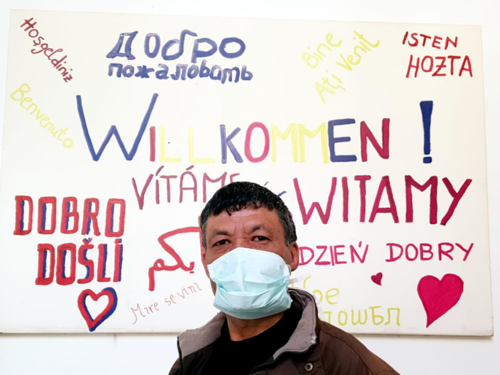 Hoşgeldiniz
Добро
пожаловать
Bine
Aţi Venit
ISTEN
HOZTA
Benvenuto
WILLKOMMEN !
VÍTÁME
WITAMY
DOBRO
DOŠLI
بكم
DZIEŃ DOBRY
Mire se vini